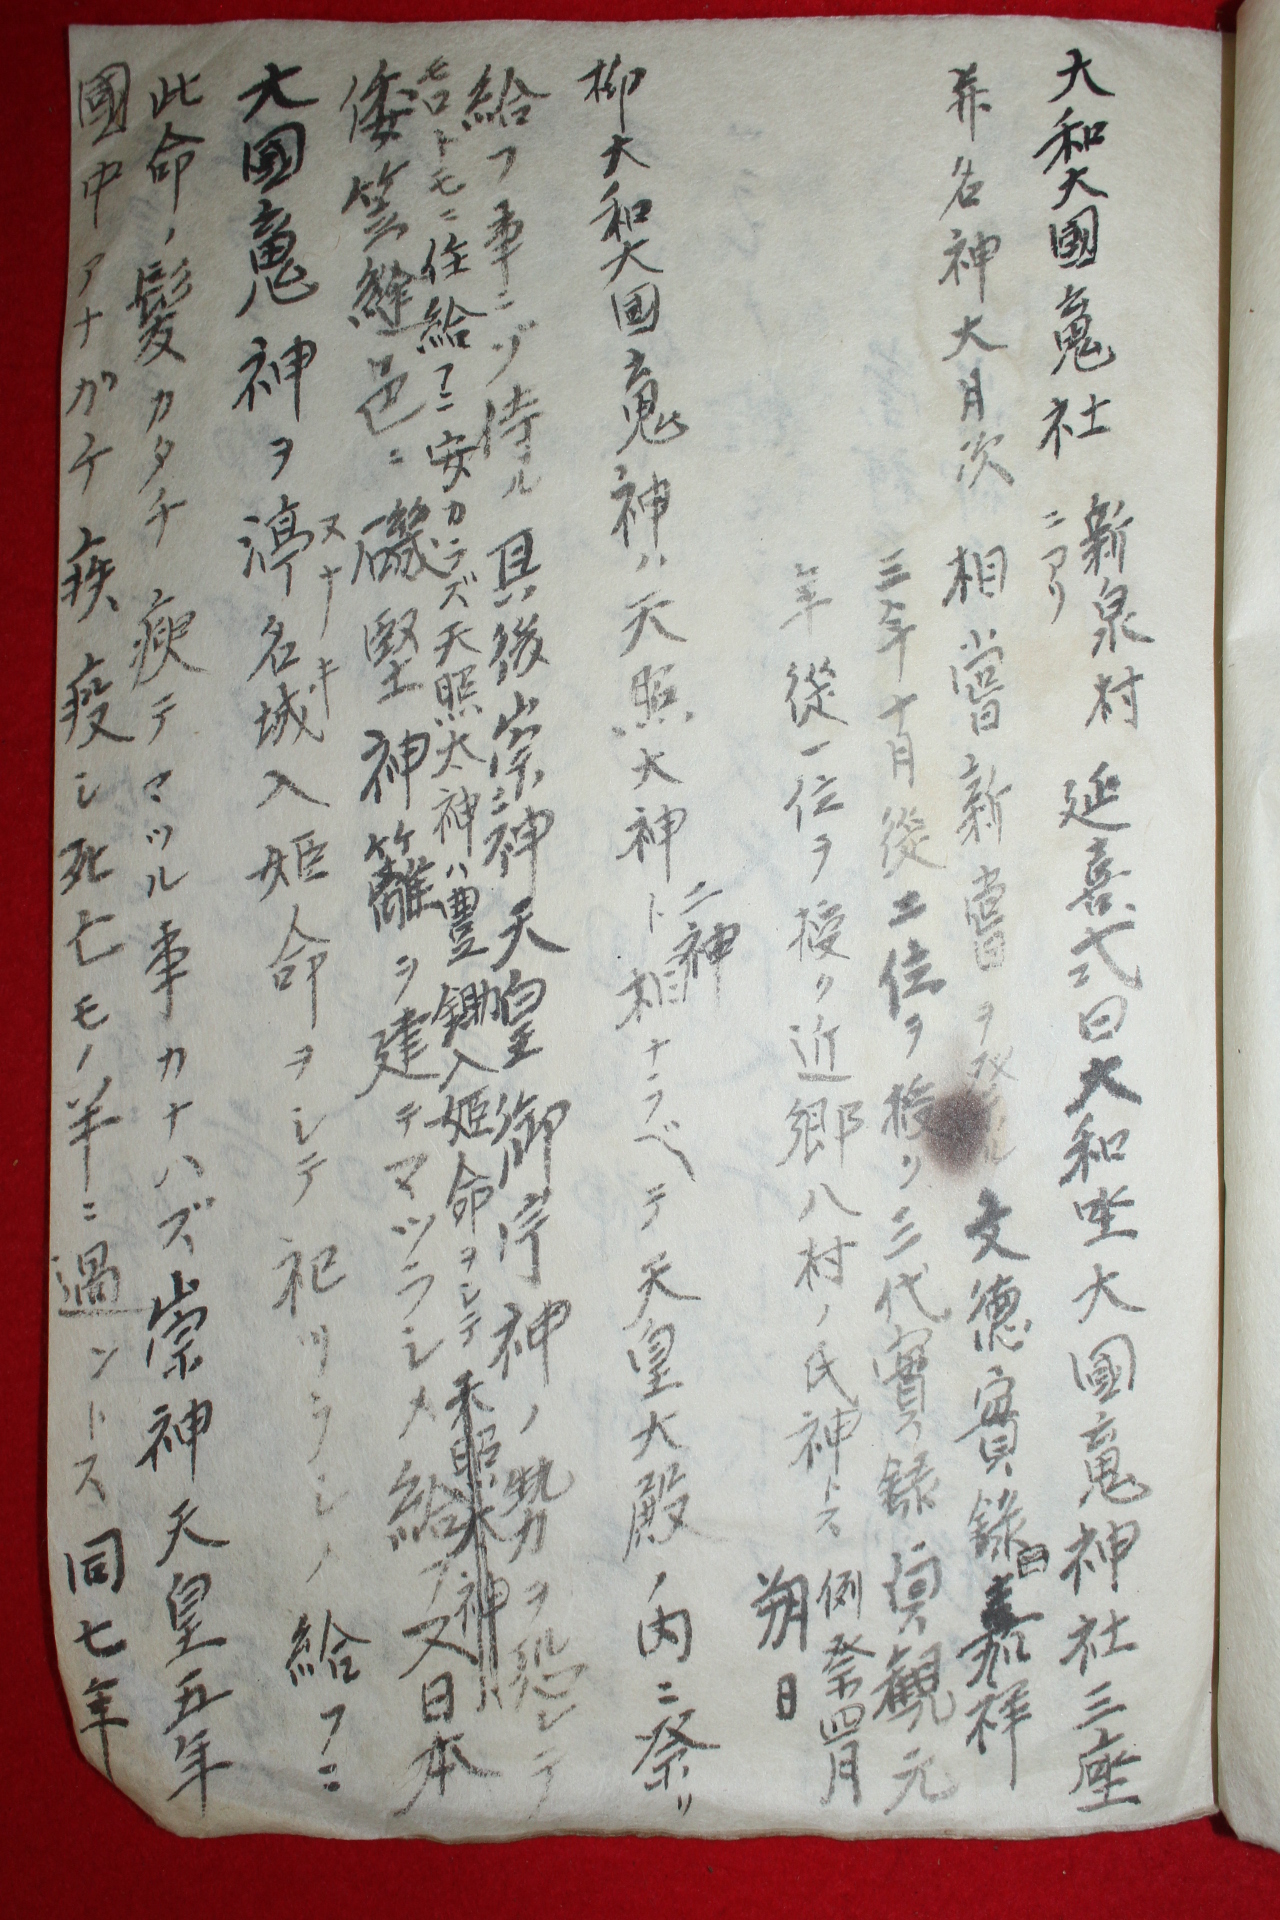 大和大國䰟社 新泉村ニアリ 延喜式曰大和坐大國䰟神社三座
并名神大月次 相嘗新嘗ヲ祭ル 文徳實録曰嘉祥
三年十月從二位ヲ授リ三代實録ニ貞観元
年從一位ヲ授リ近郷八村ノ氏神トス 例祭四月朔日
抑大和大国䰟神ハ天照大神ト二神相ナラベテ天皇大殿ノ内ニ祭リ
給フ事ニゾ侍ル 其後崇神天皇御宇神ノ勢ヲ恐レテ
モロトモニ住給フニ安カラズ天照太神ハ豊鋤入姫命ヲシテ天照大神
倭笠縫邑ニ磯堅神籬ヲ建テマツラシメ給フ又日本
大國䰟神ヲ渟名城入姫命ヲシテ祀ツラシメ給フニ
ヌナキ
此命ノ髪カタチ痩テマツル事カナハズ崇神天皇五年
國中アナガケ疾疫シ死亡モノ半ニ過ントス同七年